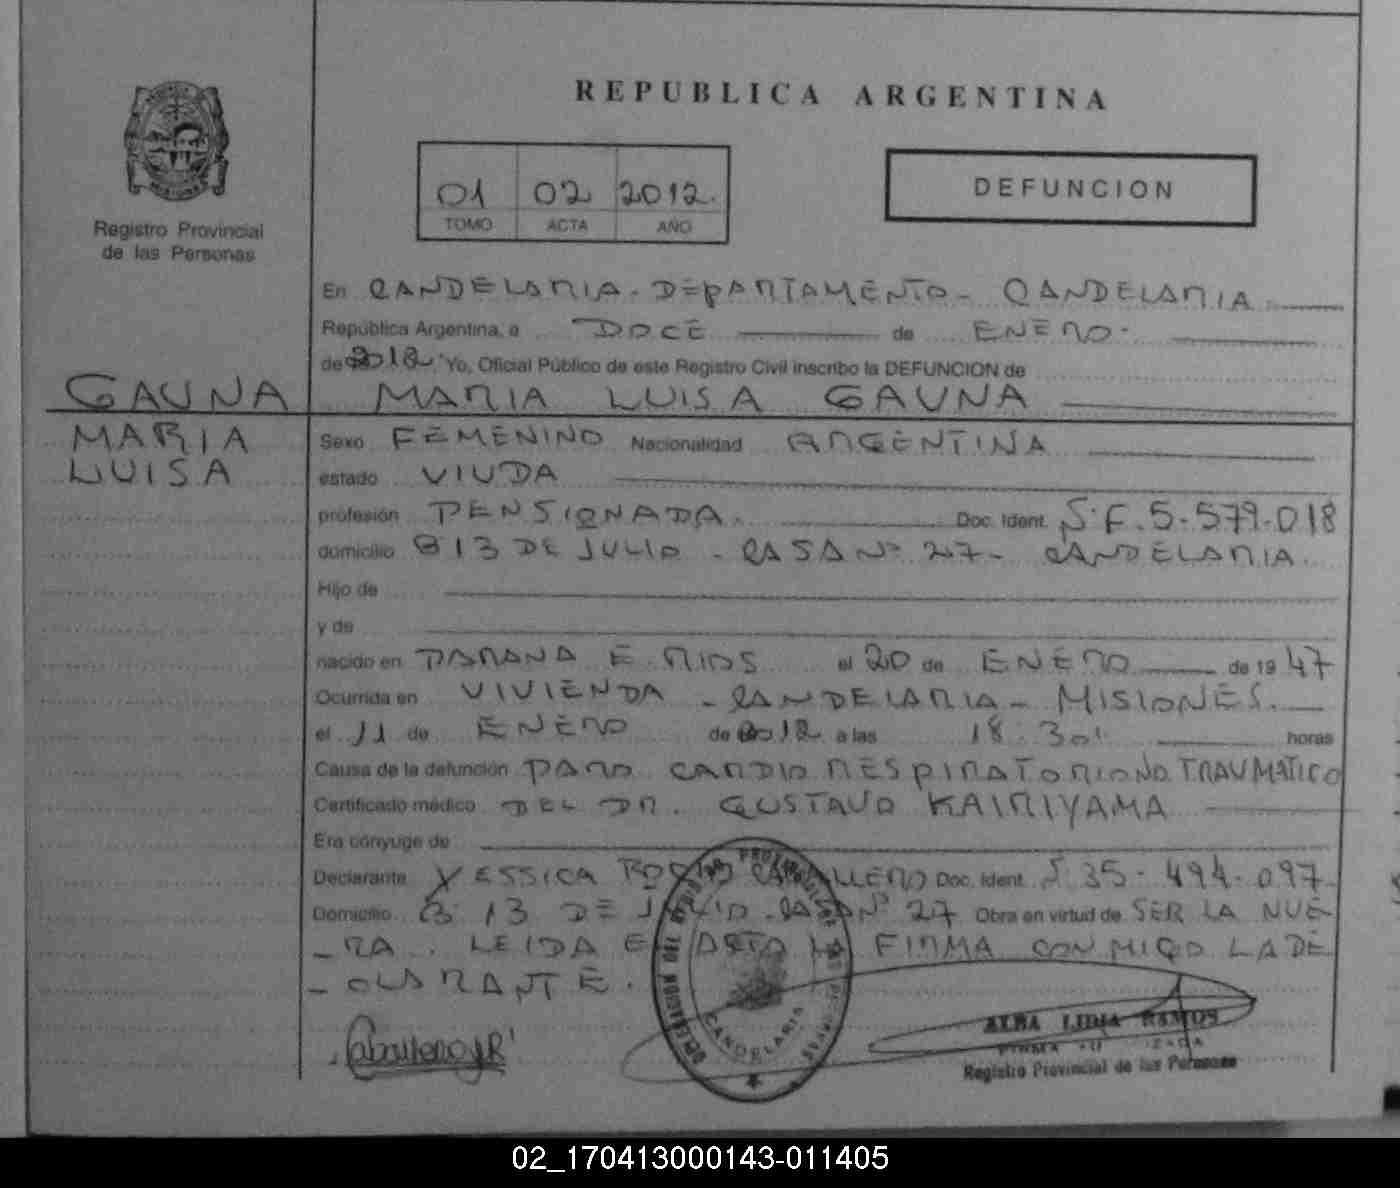 REPUBLICA ARGENTINA
01 02 2012.
TOMO ACTA AÑO
DEFUNCION
Registro Provincial
de las Personas
En CANDELARIA - DEPARTAMENTO - CANDELARIA
República Argentina, a DOCE de ENERO.
de 2012. Yo, Oficial Público de este Registro Civil inscribo la DEFUNCION de
GAUNA MARIA LUISA GAUNA
MARIA
LUISA
Sexo FEMENINO Nacionalidad ARGENTINA
estado VIUDA
profesión PENSIONADA. Doc. Ident. S.F. 5.579.018
domicilio B 13 DE JULIO - CASA Nº 27 - CANDELARIA.
Hijo de
y de
nacido en PARANA E. RIOS el 20 de ENERO de 19 47
Ocurrida en VIVIENDA - CANDELARIA - MISIONES.
el 11 de ENERO de 2012 a las 18:30 horas
Causa de la defunción PARO CARDIO RESPIRATORIO NO TRAUMATICO
Certificado médico DEL DR. GUSTAVO KAIRIYAMA
Era cónyuge de
Declarante YESSICA ROCIO CABALLERO Doc. Ident. S. 35.494.097
Domicilio B 13 DE JULIO CASA Nº 27 Obra en virtud de SER LA NUE-
-RA. LEIDA EL ACTA LA FIRMA CONMIGO LA DE
-CLARANTE.
Caballero y R
DELEGACION DEL REGISTRO PROVINCIAL DE LAS PERSONAS
CANDELARIA
ALBA LIDIA RAMOS
FIRMA AUTORIZADA
Registro Provincial de las Personas
02_170413000143-011405